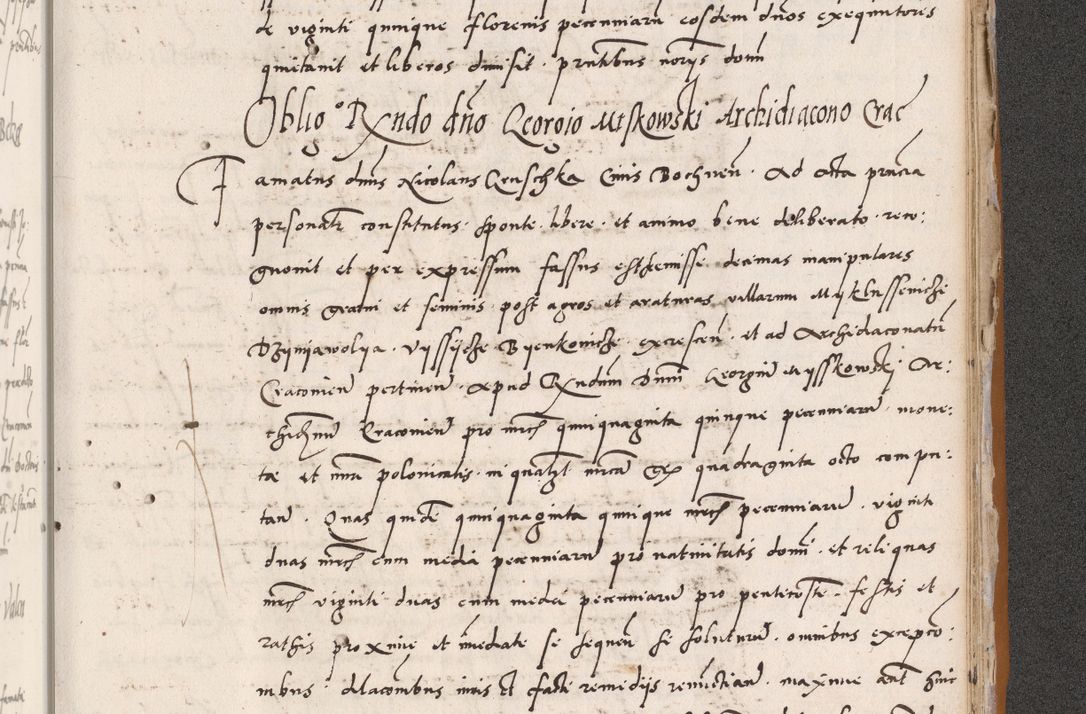 de viginti quinque florenis pecunniarũ eosdem dños exequutores
quietanit et liberos dimisit · pñtibus norijs domĩ
Obliõ Rṽndo dño Georgio Miskowski Archidiacono Crac̃
Famatus dñus Nicolaus Gruschka Civis Bochneñ · Ad Acta pñcia
personalr̃ constitutus · sponte · libere · et animo bene deliberato · reco:
gnouit et per expressum fassus est emisse decimas manipulares
omnis grani et seminis post agros et araturas villarum Myklussenicze
Dziniawolya · Vyssycze · Byenkonicze · excrescen̄ · et ad Archidiaconatũ
Cracouien̄ pertinen̄ · Apud Rṽndum Dnũm Georgiũ Mysskowski · Ar:
chidnũ Cracouien̄ pro mrcs quinquaginta quinque pecunniarũ · mone:
tæ et nũri polonicalis · in qualz̃t mrcã grx quadraginta octo compu:
tan̄ · Quas quidẽ quinquaginta quinque mrcs pecunniarũ · viginti
duas mrcs cum media pecunniarũ pro natiuitatis domĩ · et reliquas
mrcs viginti duas cum media pecunniarũ pro penticoste · festis et
rathis proxime et ĩmediate se sequen̄ se soluturũ · omnibus excepcõ:
nibus · dilacõnibus iuris et facti remedijs renũctian̄ · maxime